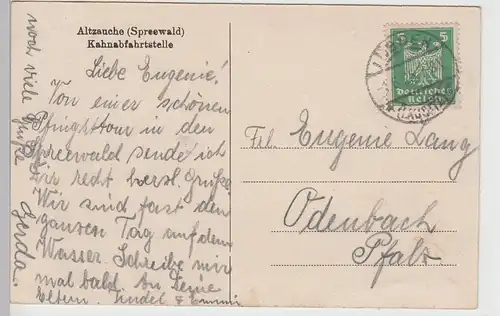 Altzauche (Spreewald)
Kahnabfahrtstelle
Liebe Eugenie!
Von einer schönen
Pfingsttour in den
Spreewald sende ich
Dir recht herzl. Grüße.
Wir sind fast den
ganzen Tag auf dem
Wasser. Schreibe mir
mal bald. An Deine
Eltern,
noch viele
Grüße Gerda.
5 5
Deutsches
Reich
LÜBBEN
Frl. Eugenie Lang
Odenbach
Pfalz